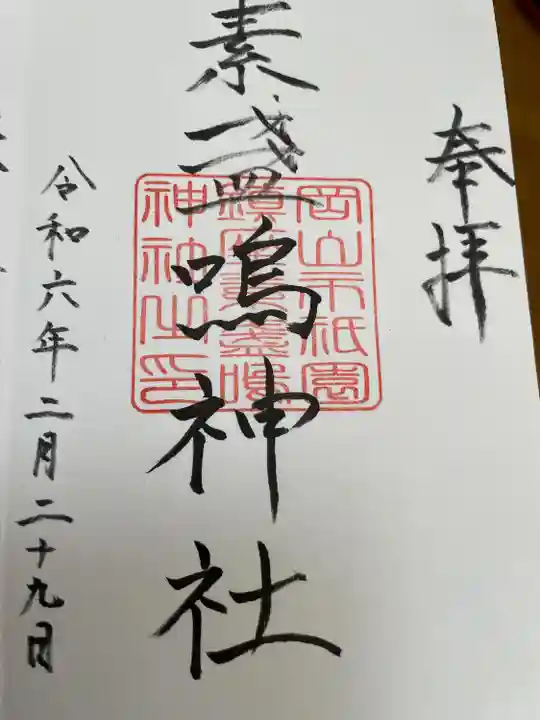 奉拝
素盞鳴神社
岡山市祇園
鎮座素盞鳴
神社之印
令和六年二月二十九日